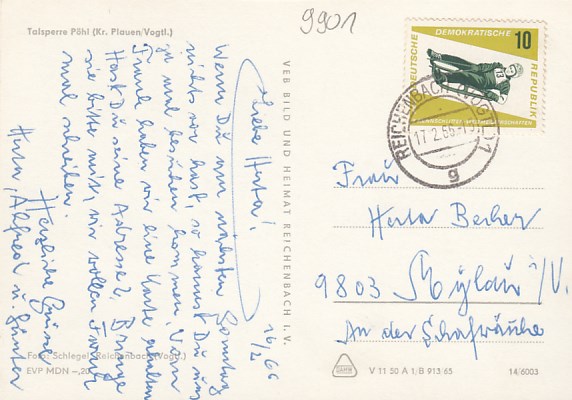 Talsperre Pöhl (Kr. Plauen/Vogtl.)
9901
16/2 66
Liebe Herta!
Wenn Du nun nächsten Sonntag
nichts vor hast, so kannst Du uns
ja mal besuchen kommen. Von
Frank haben wir eine Karte erhalten
Hast Du seine Adresse? Bringe
sie bitte mit, wir wollen Frank
mal schreiben.
Herzliche Grüße
Herta, Alfred u. Günter
Foto: Schlegel, Reichenbach (Vogtl.)
EVP MDN -,20
VEB BILD UND HEIMAT REICHENBACH I. V.
DEUTSCHE DEMOKRATISCHE REPUBLIK
10
REICHENBACH (VOGTL) 1
17.2.66
g
Frau
Herta Becher
9803 Mylau /V.
An der
V 11 50 A 1/B 913/65
14/6003